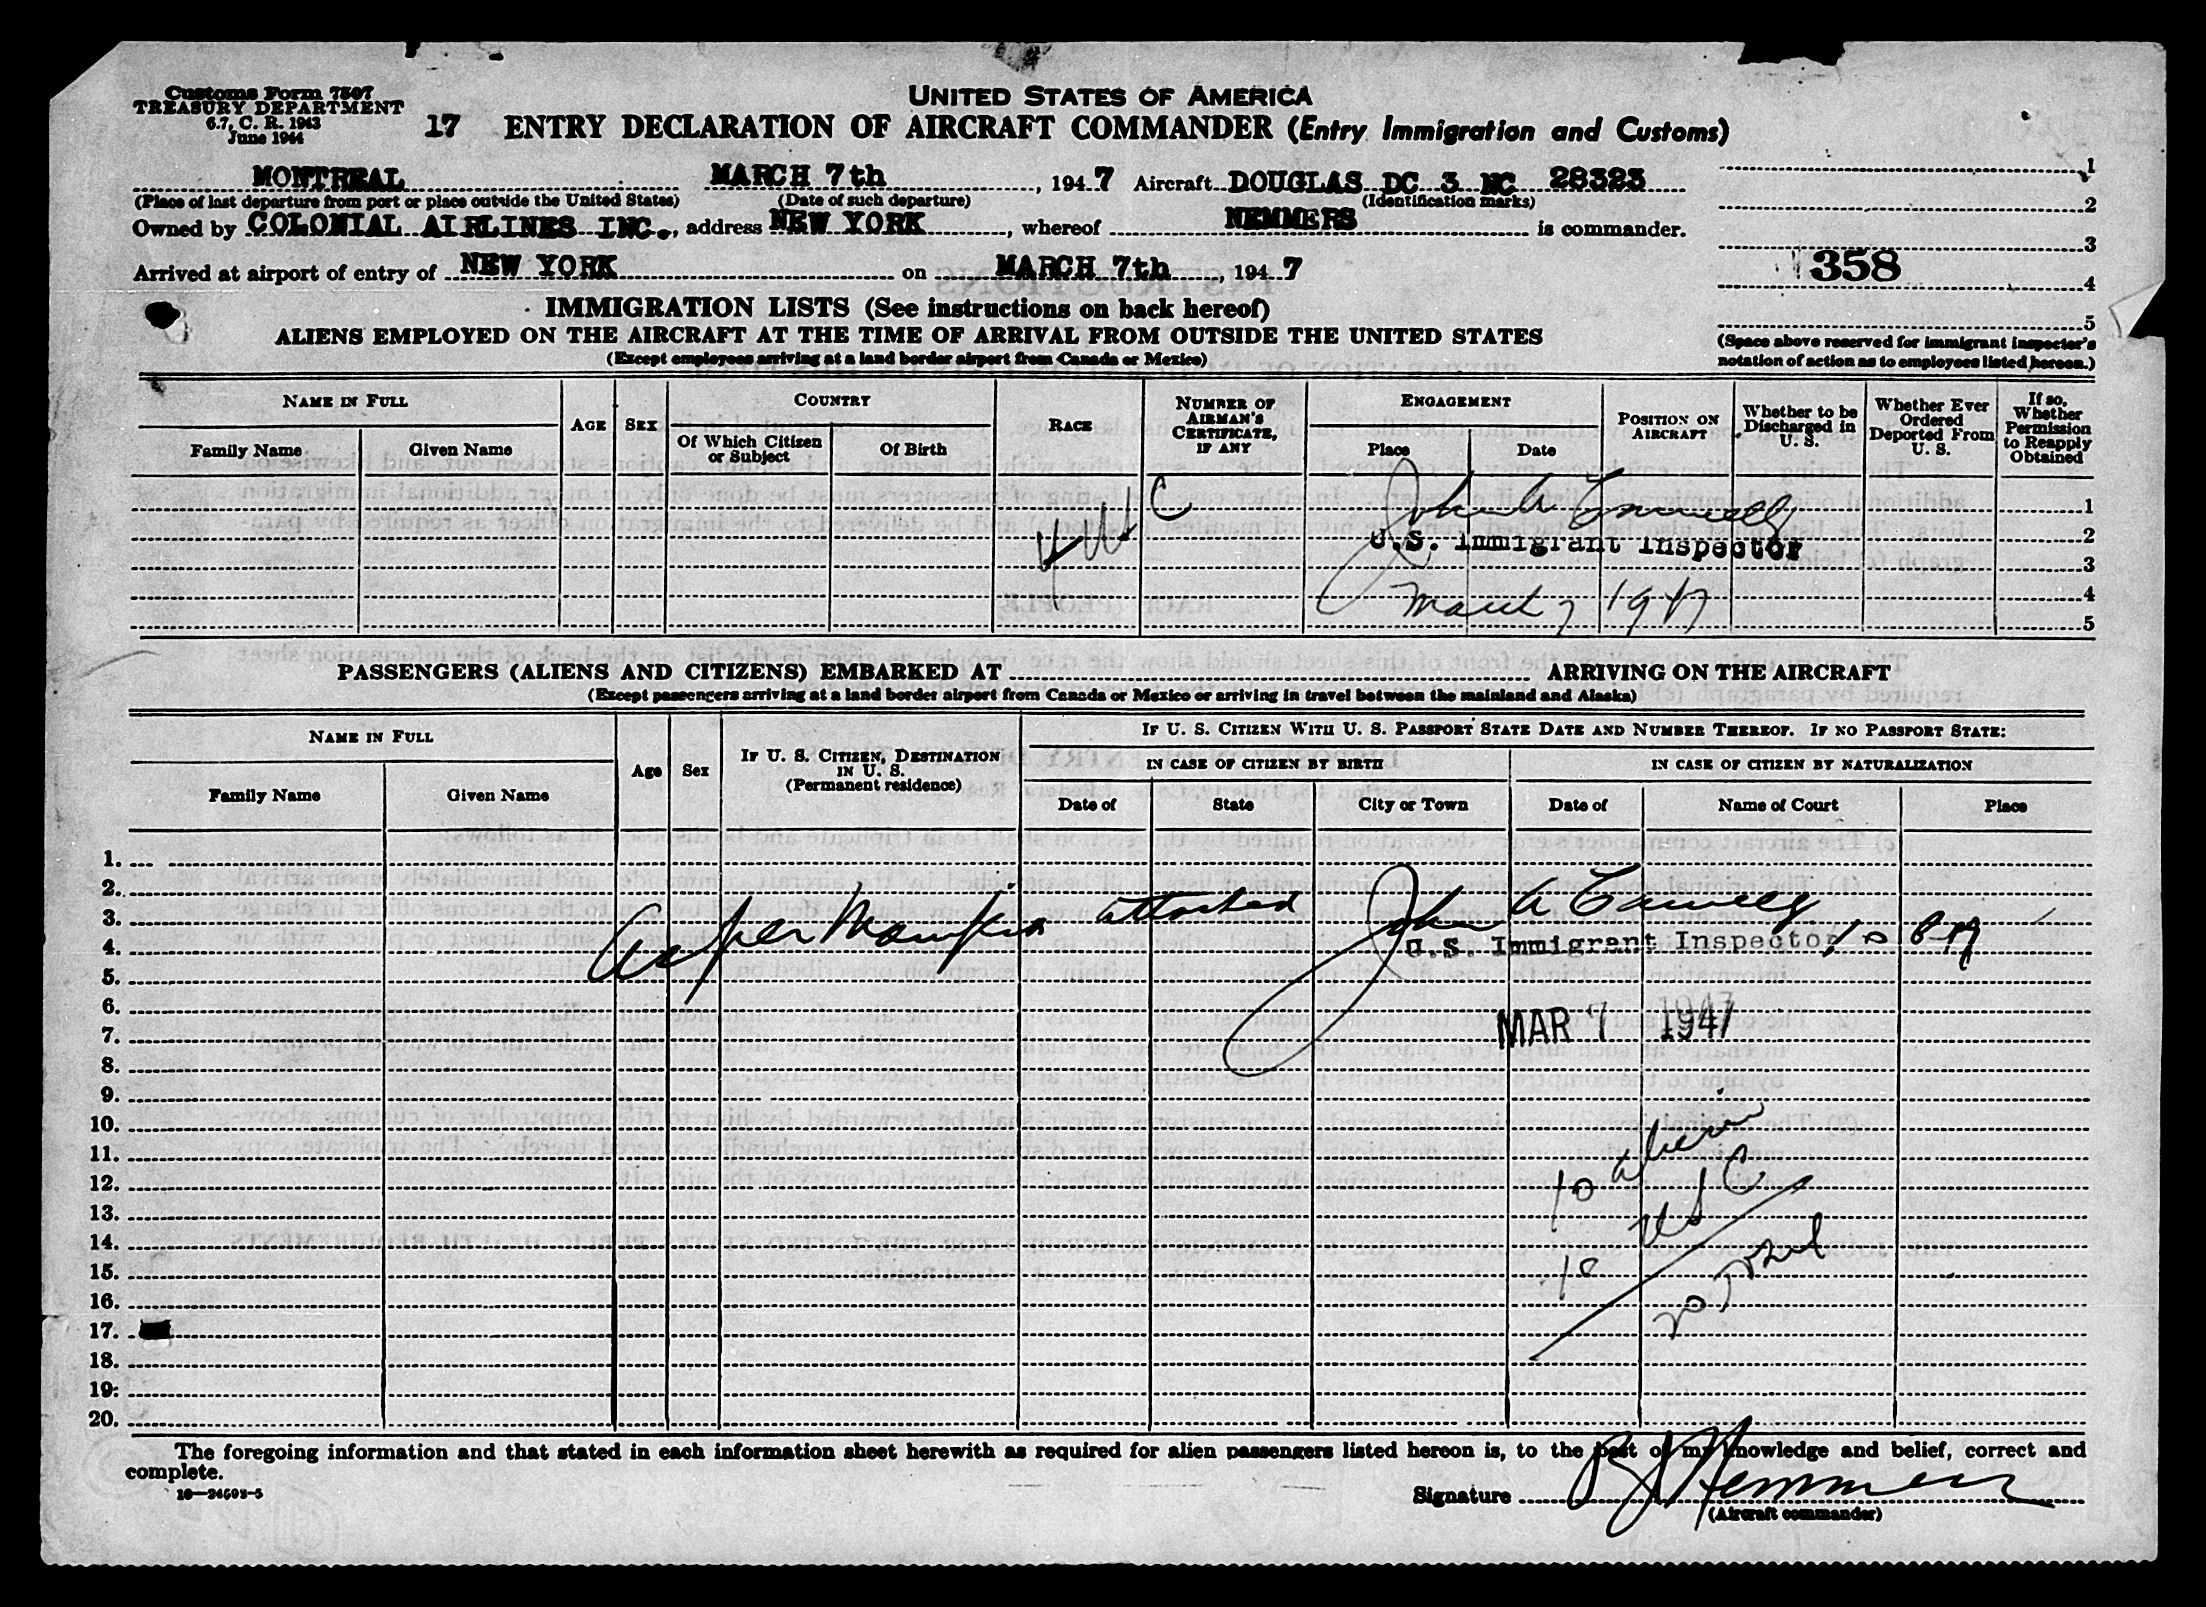 Customs Form 7507
TREASURY DEPARTMENT
6.7, C. R. 1943
June 1944
UNITED STATES OF AMERICA
17 ENTRY DECLARATION OF AIRCRAFT COMMANDER (Entry Immigration and Customs)
MONTREAL MARCH 7th, 1947 Aircraft DOUGLAS DC 3 NC 28323
(Place of last departure from port or place outside the United States) (Date of such departure) (Identification marks)
Owned by COLONIAL AIRLINES INC., address NEW YORK, whereof NEMMERS is commander.
Arrived at airport of entry of NEW YORK on MARCH 7th, 1947
1
2
3
358
4
5
(Space above reserved for immigrant inspector's
notation of action as to employees listed hereon.)
IMMIGRATION LISTS (See instructions on back hereof)
ALIENS EMPLOYED ON THE AIRCRAFT AT THE TIME OF ARRIVAL FROM OUTSIDE THE UNITED STATES
(Except employees arriving at a land border airport from Canada or Mexico)
NAME IN FULL
Family Name Given Name
AGE SEX
COUNTRY
Of Which Citizen or Subject Of Birth
RACE
NUMBER OF AIRMAN'S CERTIFICATE, IF ANY
ENGAGEMENT
Place Date
POSITION ON AIRCRAFT
Whether to be Discharged in U. S.
Whether Ever Ordered Deported From U. S.
If so, Whether Permission to Reapply Obtained
1
2
U.S. Immigrant Inspector
3
4
March 7 1947
5
PASSENGERS (ALIENS AND CITIZENS) EMBARKED AT ARRIVING ON THE AIRCRAFT
(Except passengers arriving at a land border airport from Canada or Mexico or arriving in travel between the mainland and Alaska)
NAME IN FULL
Family Name Given Name
Age Sex
IF U. S. CITIZEN, DESTINATION IN U. S.
(Permanent residence)
IF U. S. CITIZEN WITH U. S. PASSPORT STATE DATE AND NUMBER THEREOF. IF NO PASSPORT STATE:
IN CASE OF CITIZEN BY BIRTH IN CASE OF CITIZEN BY NATURALIZATION
Date of State City or Town Date of Name of Court Place
1.
2.
3.
As per Manifest attached John A
4.
U.S. Immigrant Inspector
5.
6.
7.
MAR 7 1947
8.
9.
10.
11.
12.
10 alien
13.
10 USC
14.
15.
16.
20 total
17.
18.
19.
20.
The foregoing information and that stated in each information sheet herewith as required for alien passengers listed hereon is, to the best of my knowledge and belief, correct and
complete.
Signature B J Nemmers
(Aircraft commander)